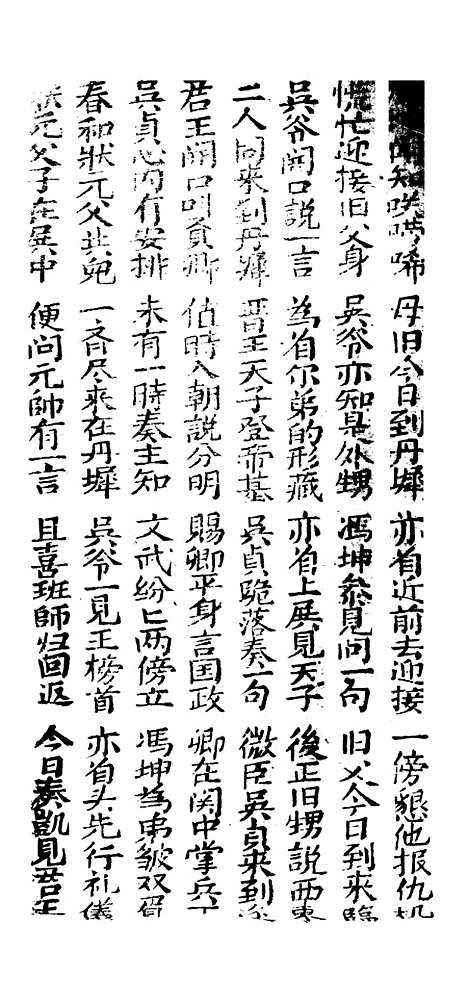 知哄哄唏 母旧今日到丹墀 亦有近前去迎接 一傍懇他报仇机
慌忙迎接旧父身 吳爷亦知是外甥 馮坤叅見问一句 旧父今日到來臨
吳爷闲口說一言 為有尔弟的形藏 亦有上展見天子 後正旧甥說西東
二人同來到丹墀 晋王天子登帝基 吳貞跪落奏一句 微臣吳貞來到
君王開口叫貟卿 估時入朝說分明 賜卿平身言国政 卿在関中掌兵丁
吳貞心内有安排 未有一時奏主知 文武纷匕两傍立 馮坤為皱双眉
春和狀元父共兒 一斉尽來在丹墀 吳爷一見王榜首 亦有头先行礼儀
狀元父子在展中 便问元帥有一言 且喜班師归回返 今日奏凱見君王